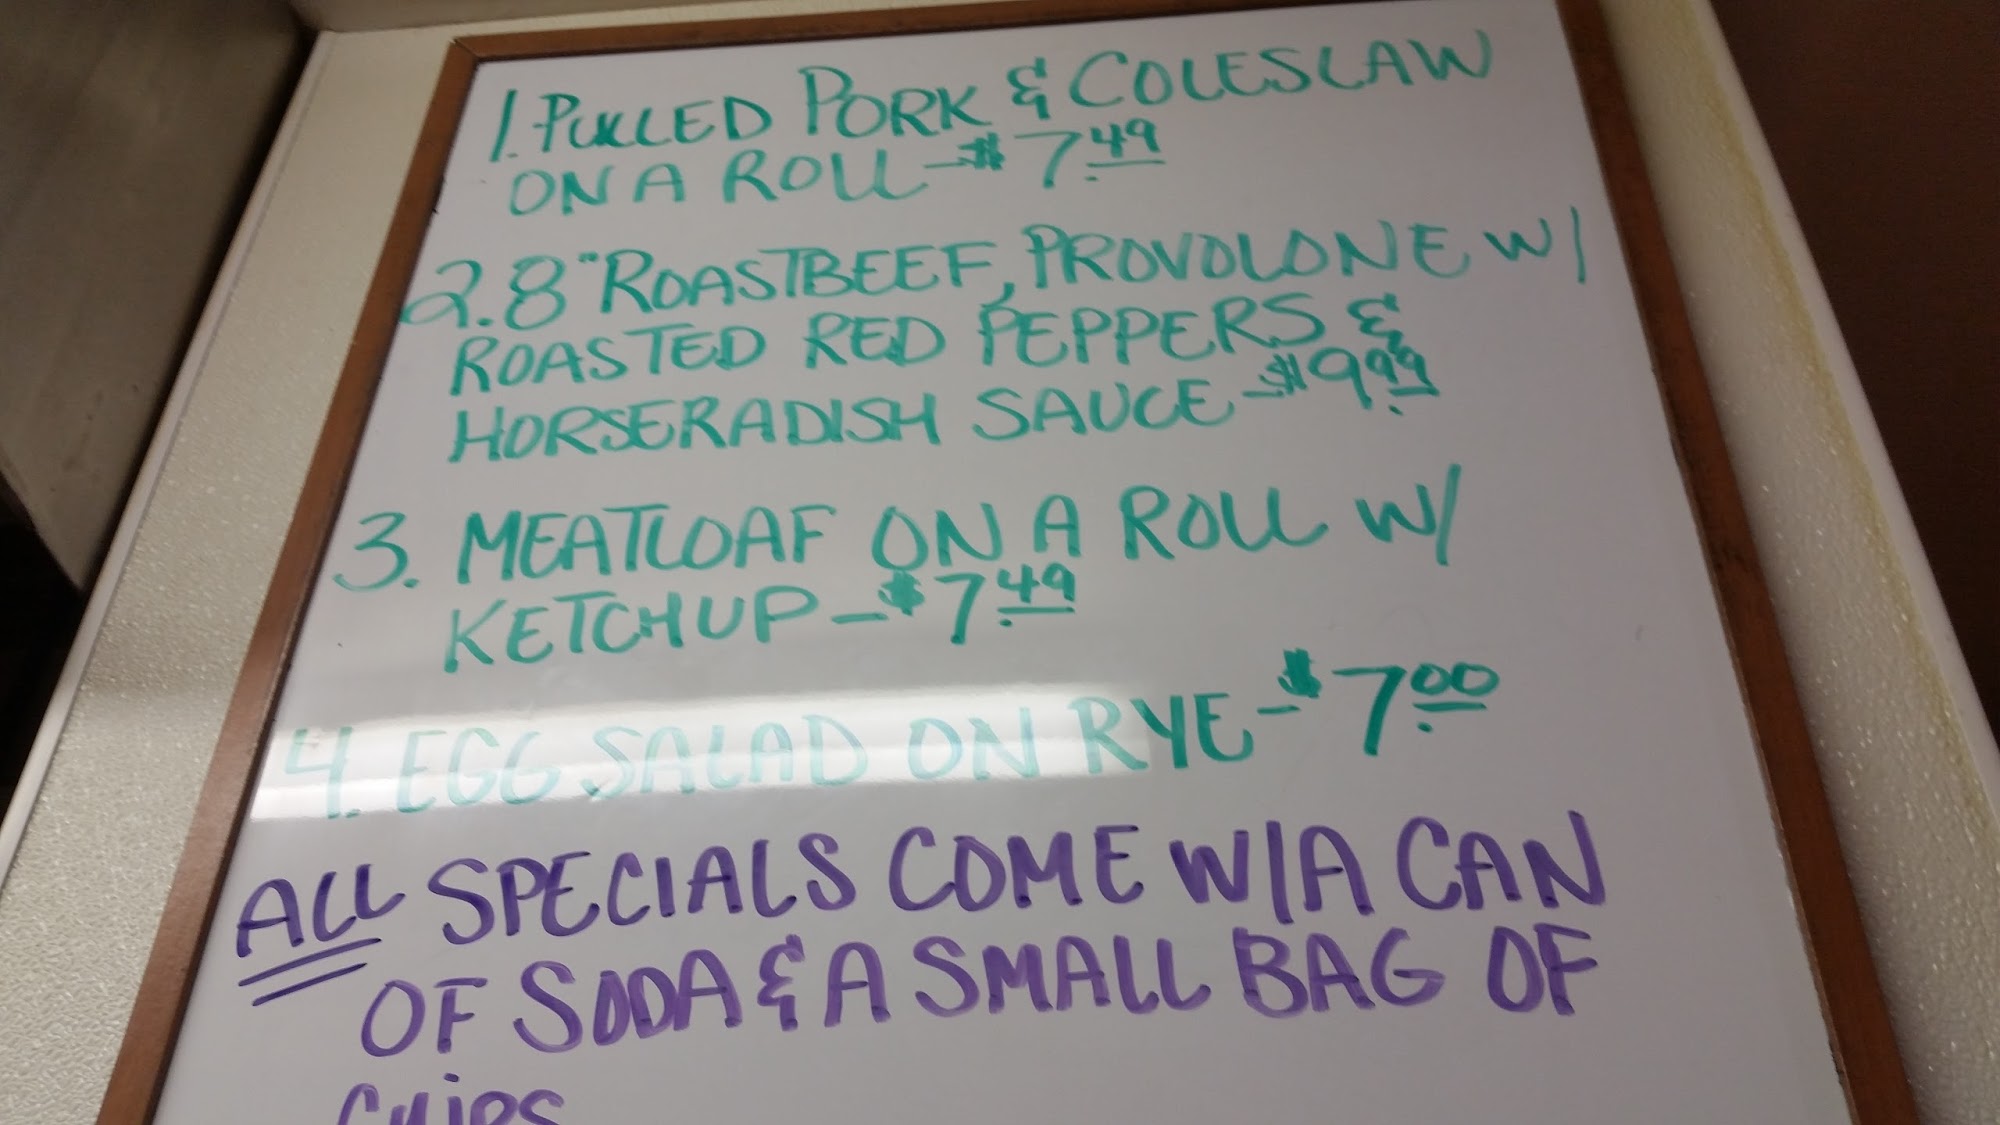 1. PULLED PORK & COLESLAW
ON A ROLL - $7.49
2. 8" ROASTBEEF, PROVOLONE W/
ROASTED RED PEPPERS &
HORSERADISH SAUCE - $9.99
3. MEATLOAF ON A ROLL W/
KETCHUP - $7.49
4. EGG SALAD ON RYE - $7.00
ALL SPECIALS COME W/A CAN
OF SODA & A SMALL BAG OF
CHIPS